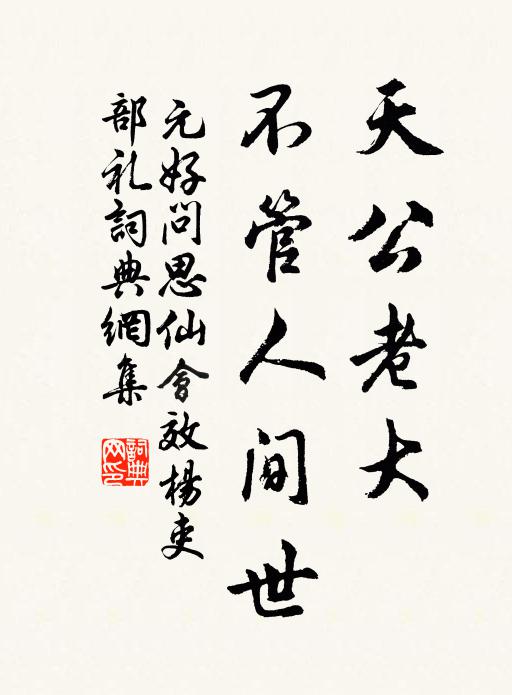 天公老大
不管人间世
元好问思仙会效杨吏
部礼詞典網集
詞典网印